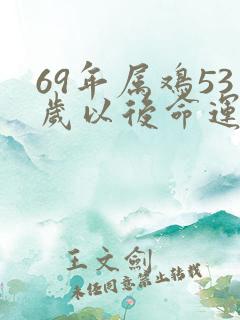 69年属鸡53
歲以後命運
王文劍
未经同意禁止转载